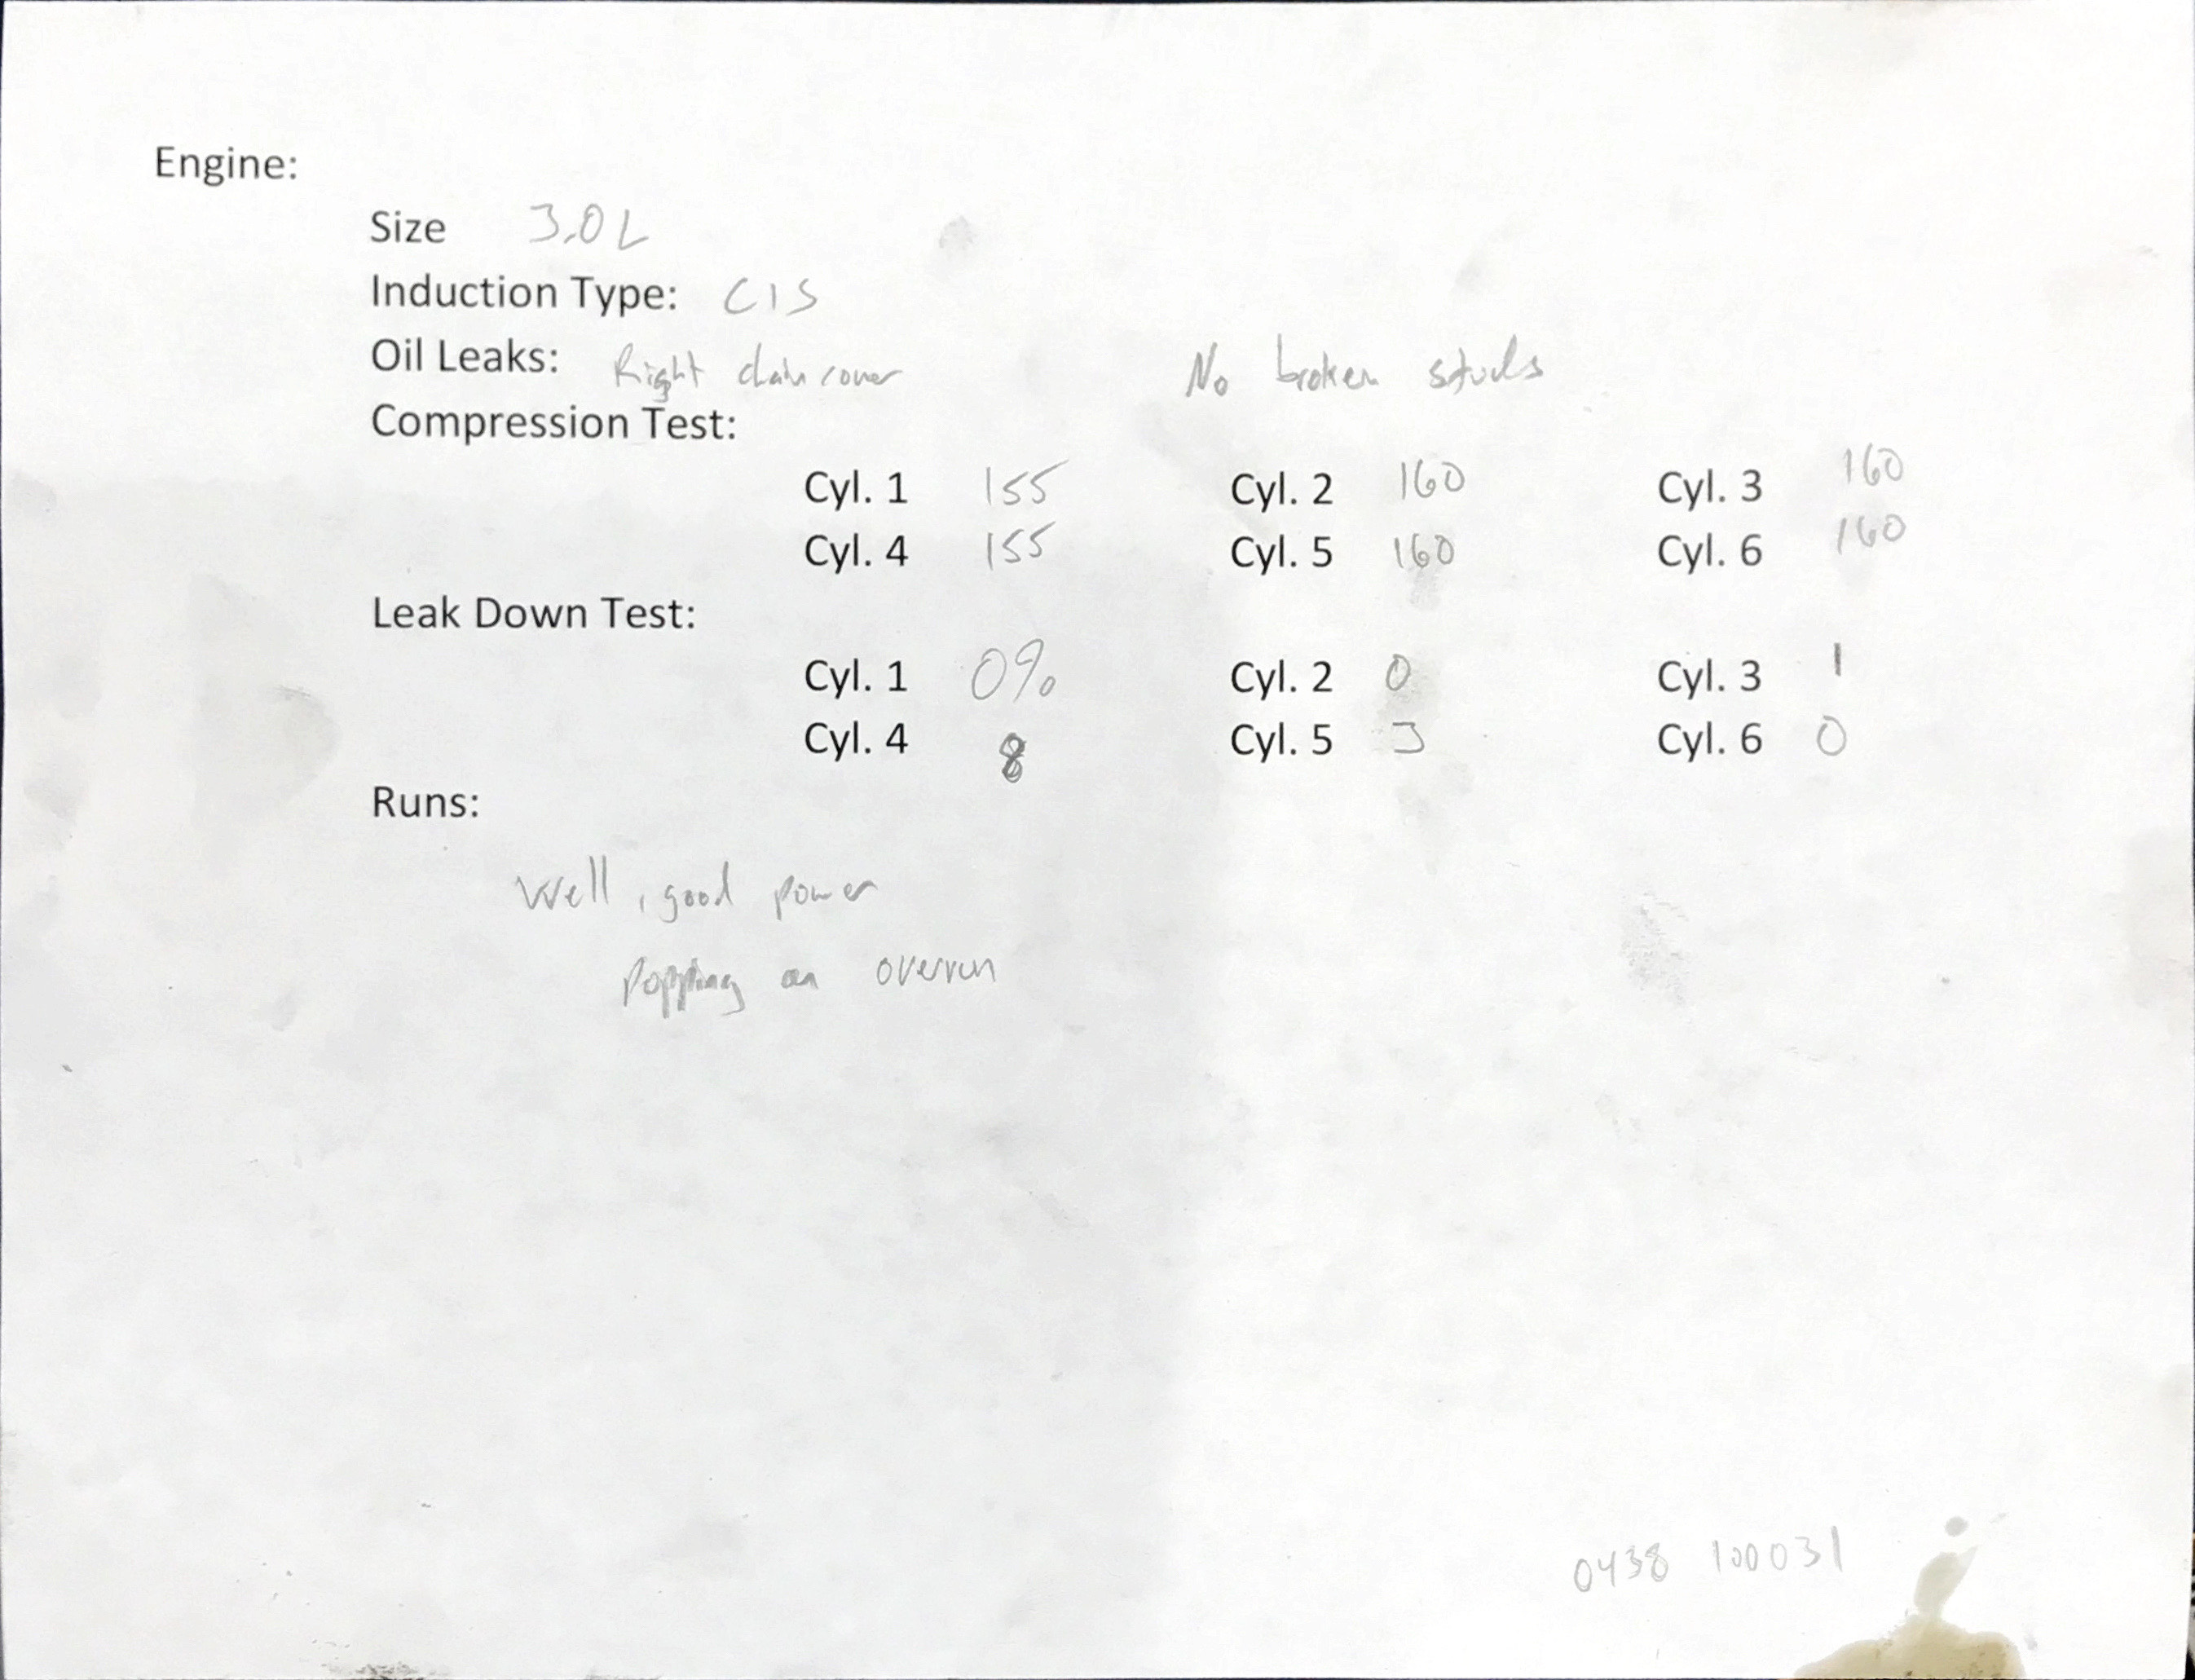 Engine:
Size 3.0L
Induction Type: CIS
Oil Leaks: Right chain cover No broken studs
Compression Test:
Cyl. 1 155 Cyl. 2 160 Cyl. 3 160
Cyl. 4 155 Cyl. 5 160 Cyl. 6 160
Leak Down Test:
Cyl. 1 0% Cyl. 2 0 Cyl. 3 1
Cyl. 4 8 Cyl. 5 3 Cyl. 6 0
Runs:
Well, good power
Popping on overrun
0438 100031